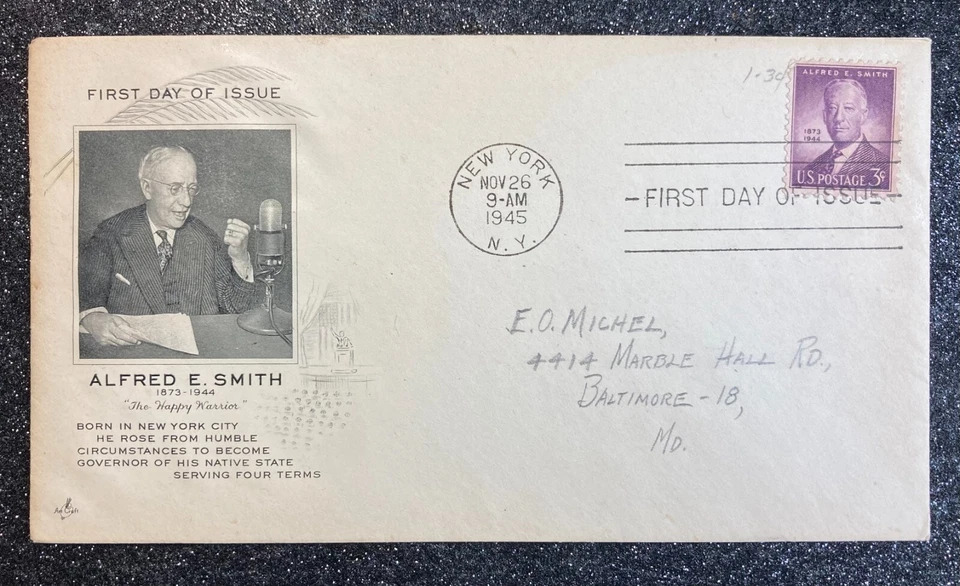 FIRST DAY OF ISSUE
ALFRED E. SMITH
1873-1944
"The Happy Warrior"
BORN IN NEW YORK CITY
HE ROSE FROM HUMBLE
CIRCUMSTANCES TO BECOME
GOVERNOR OF HIS NATIVE STATE
SERVING FOUR TERMS
Art Craft
NEW YORK
NOV 26
9-AM
1945
N. Y.
1-30
ALFRED E. SMITH
1873
1944
U.S. POSTAGE 3¢
FIRST DAY OF ISSUE
E.O. MICHEL,
4414 MARBLE HALL RD.,
BALTIMORE - 18,
MD.